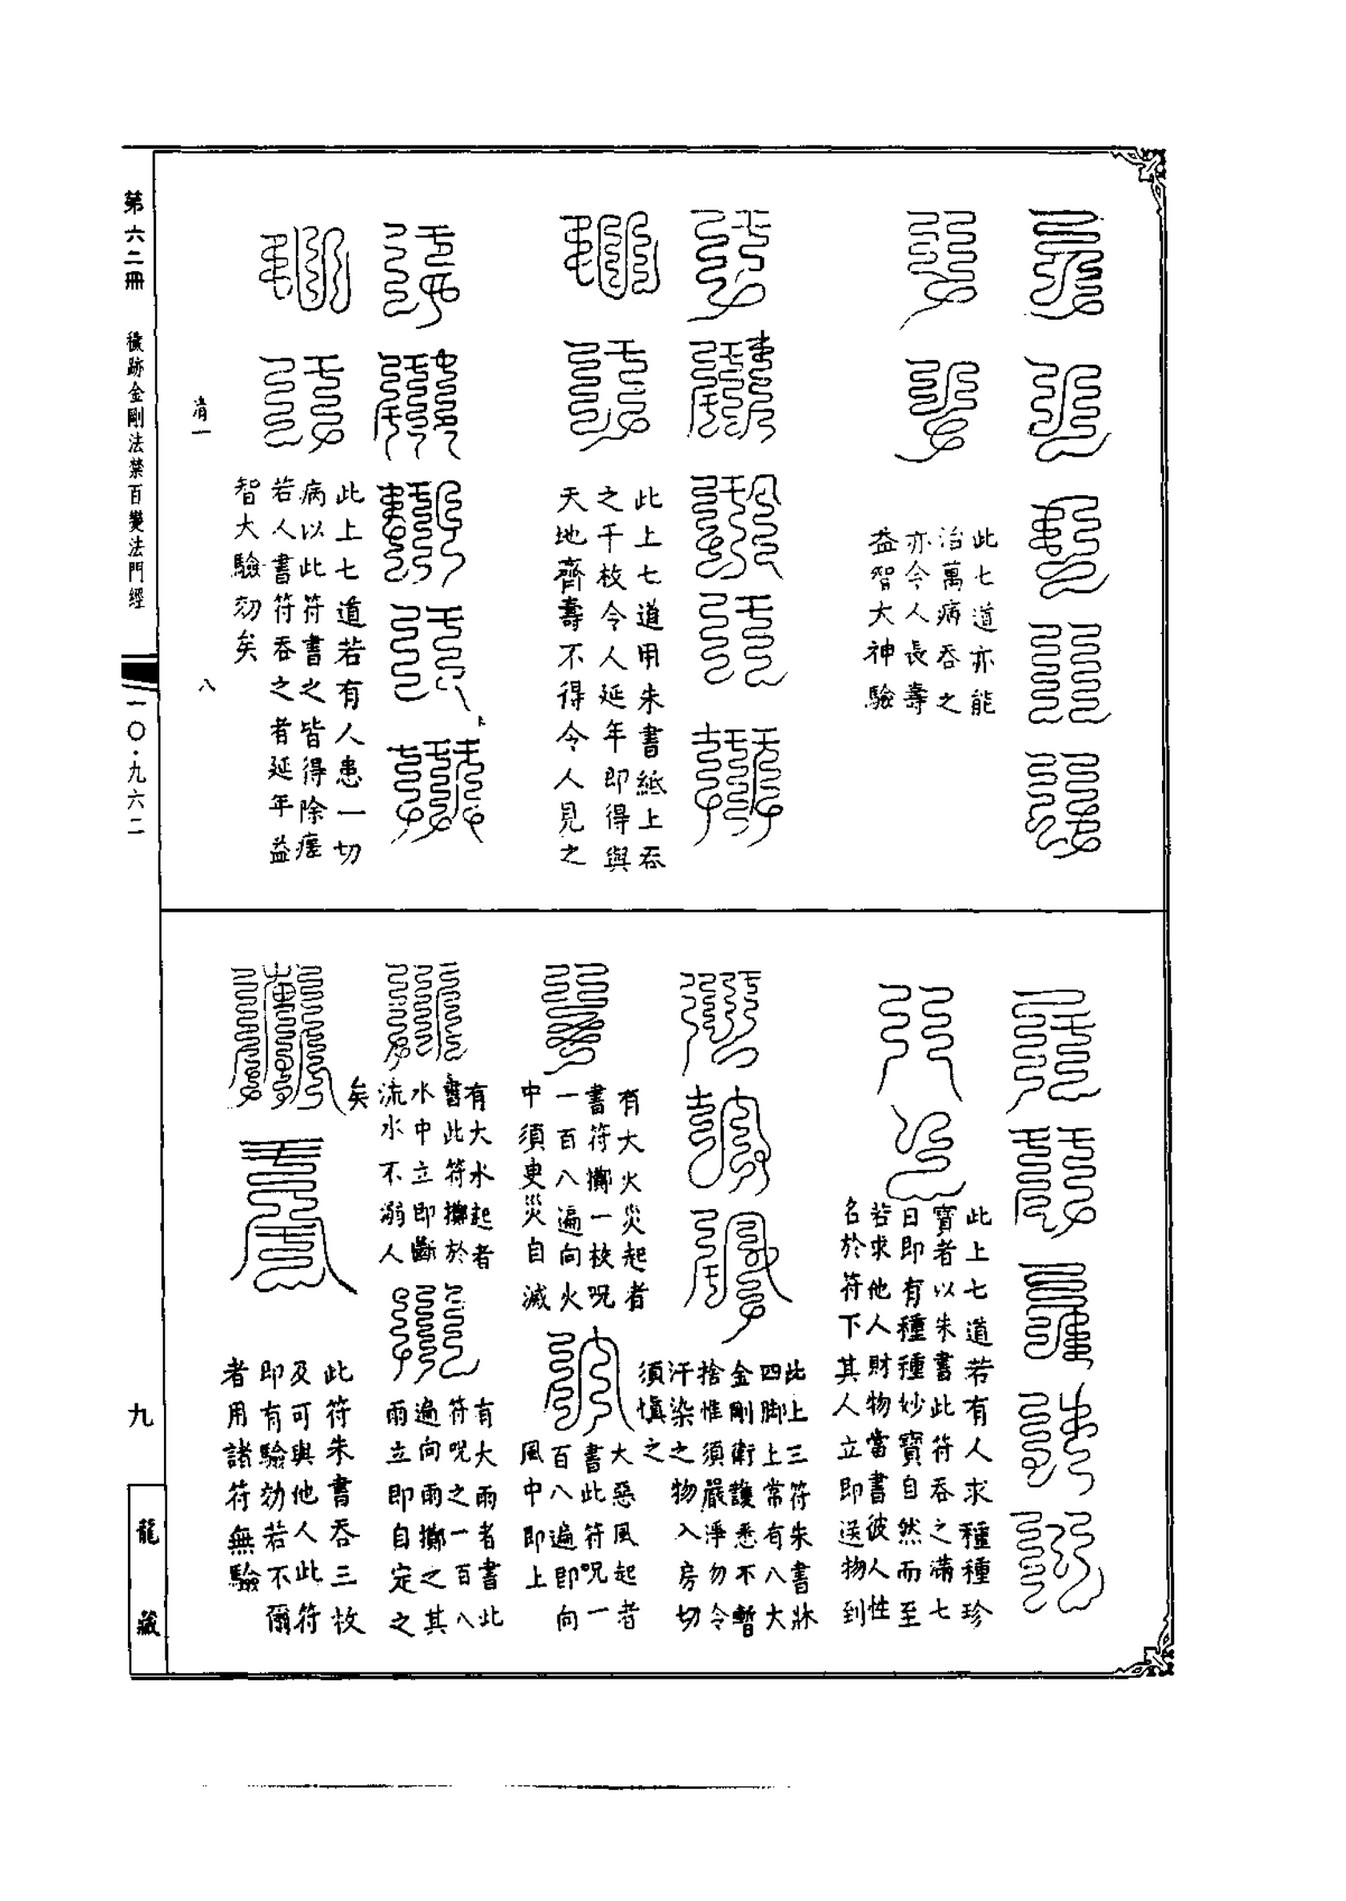 此七道亦能
治萬病吞之
亦令人長壽
益智大神驗
此上七道用朱書紙上吞
之千枚令人延年即得與
天地齊壽不得令人見之
此上七道若有人患一切
病以此符書之皆得除瘥
若人書符吞之者延年益
智大驗効矣
清一
八
此上七道若有人求種種珍
寶者以朱書此符吞之滿七
日即有種種妙寶自然而至
若求他人財物當書彼人性
名於符下其人立即送物到
此上三符朱書牀
四脚上常有八大
金剛衛護悉不暫
捨惟須嚴淨勿令
汗染之物入房切
須慎之
有大火災起者
書符擲一枚呪
一百八遍向火
中須臾災自滅
大惡風起者
書此符呪一
百八遍即向
風中即上
有大水起者
書此符擲於
水中立即斷
流水不溺人
矣
有大雨者書此
符呪之一百八
遍向雨擲之其
雨立即自定之
此符朱書吞三枚
及可與他人此符
即有驗効若不爾
者用諸符無驗
第六二冊
穢跡金剛法禁百變法門經
一〇·九六二
九
龍藏